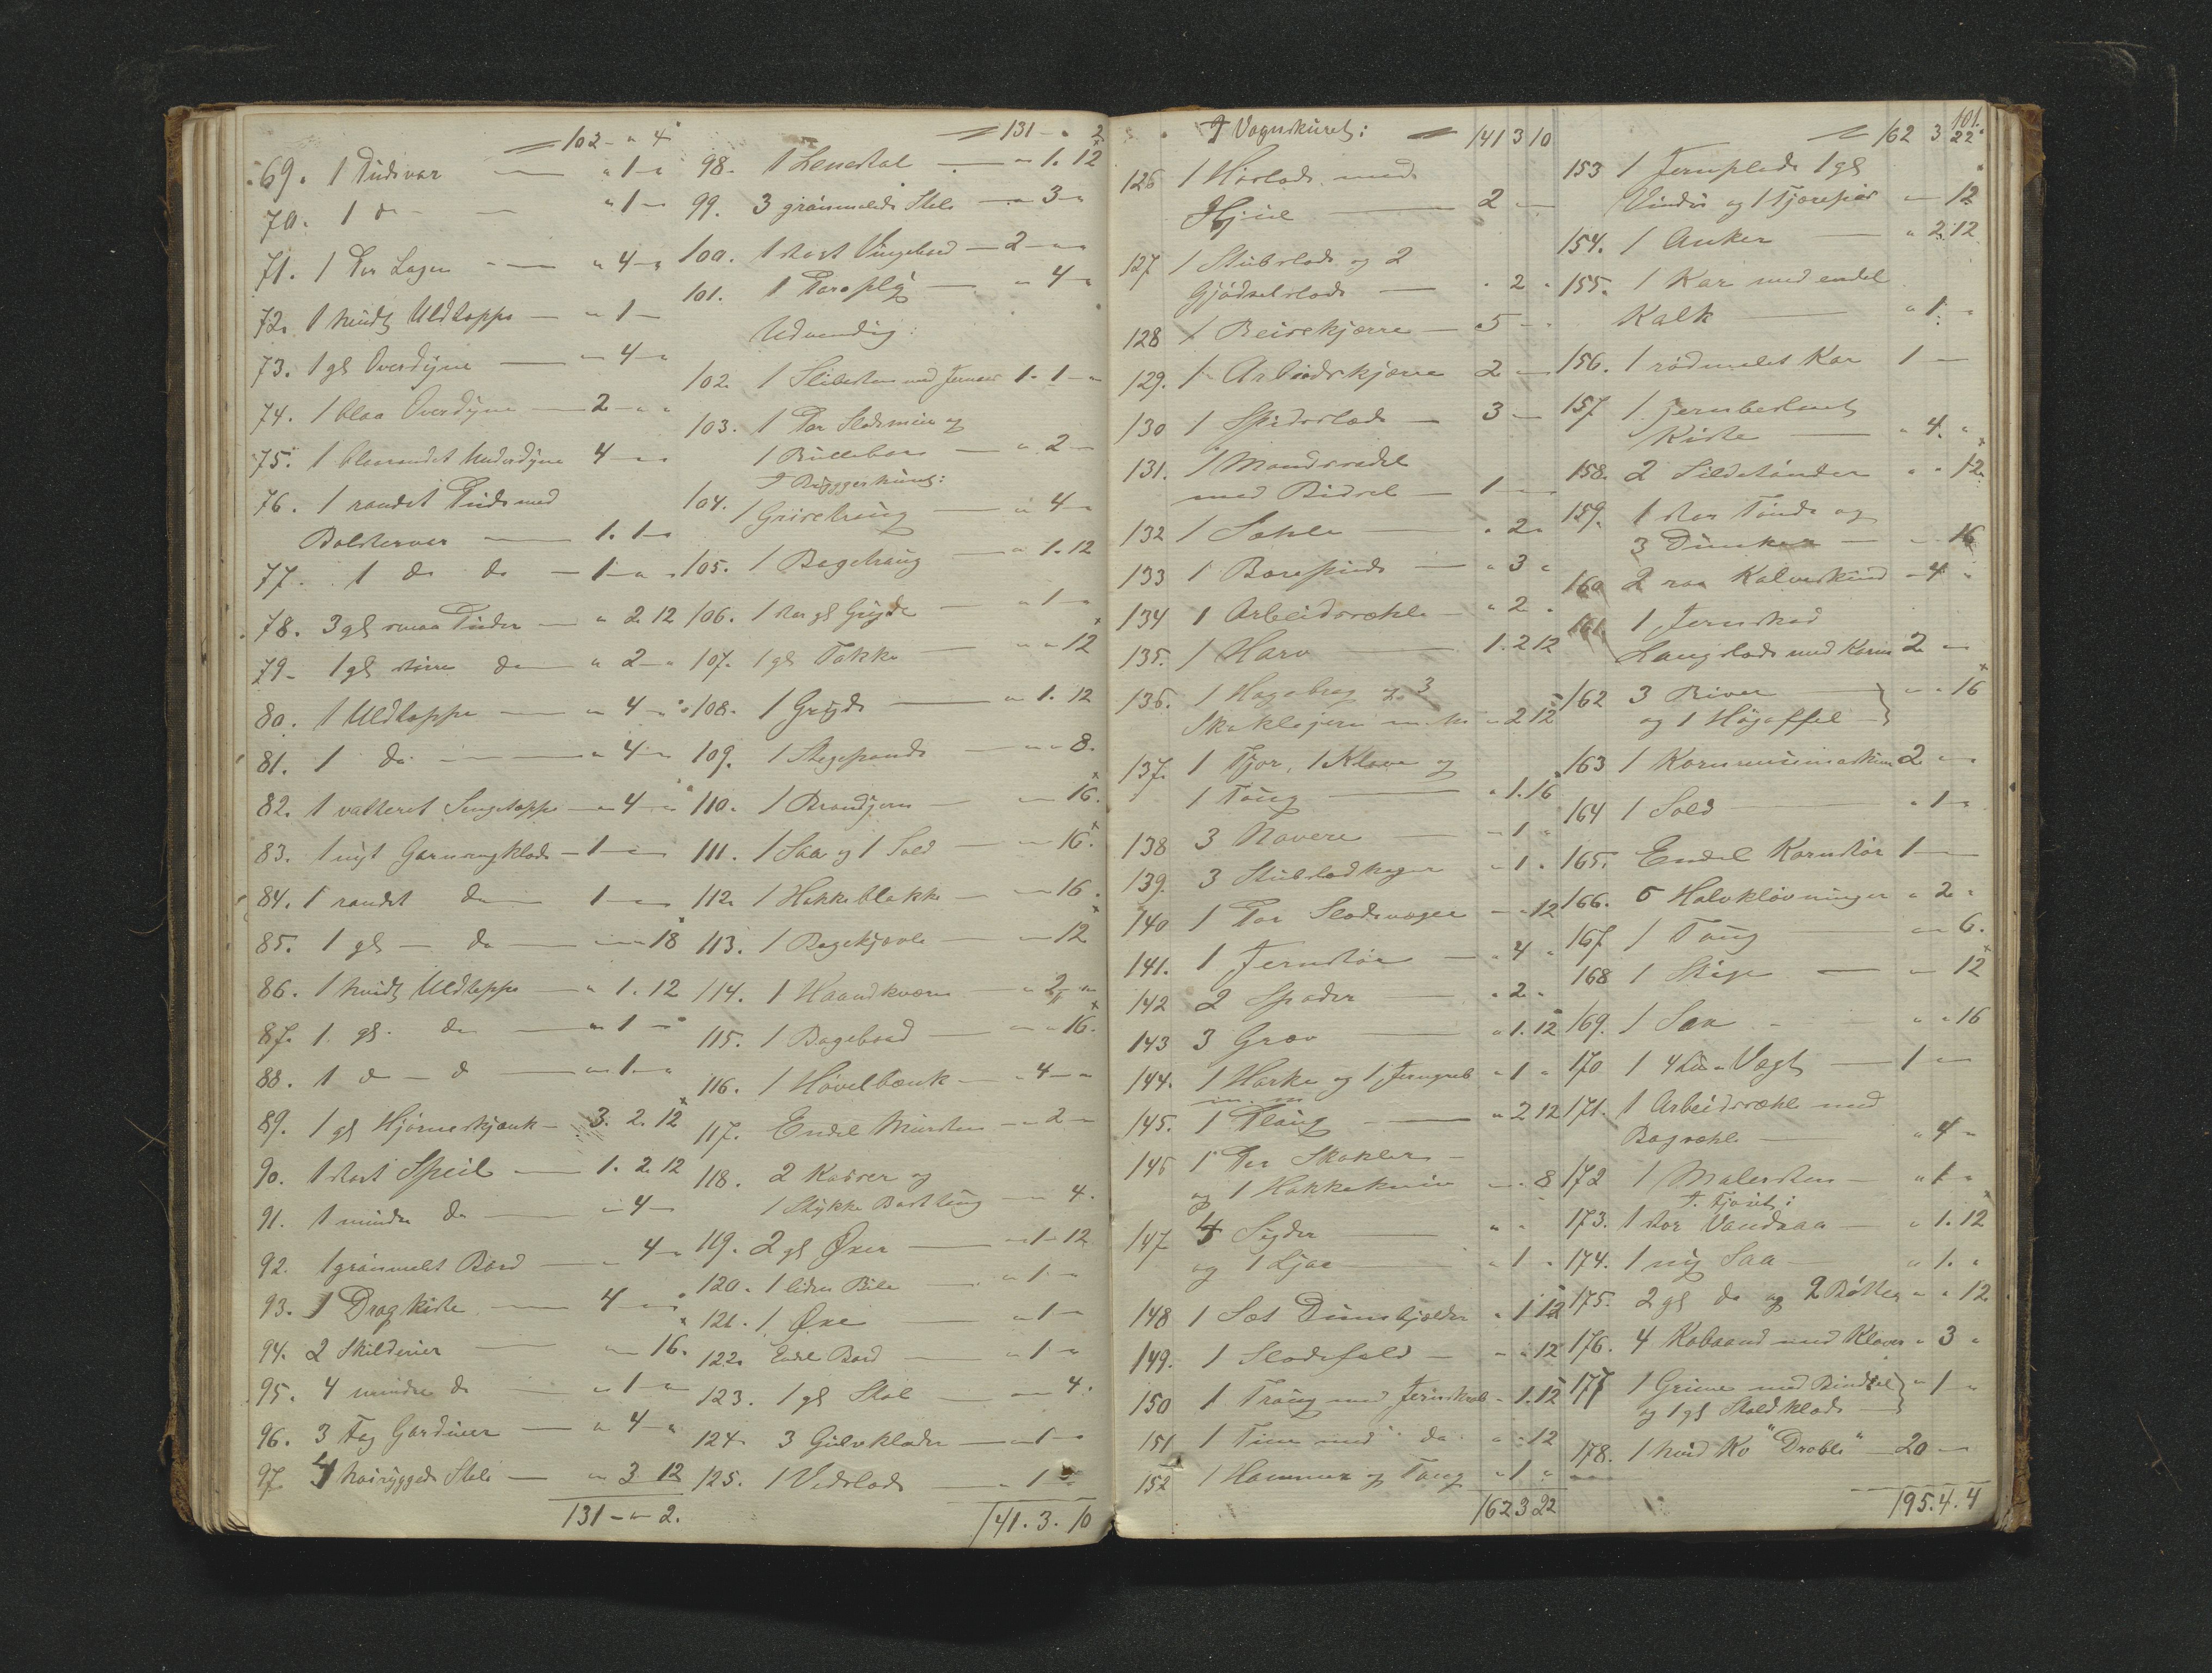 102 - " 4
69. 1 Pudevar — " 1 - "
70. 1 do — " 1 - "
71. 1 Par Lagen — " 4 - "
72. 1 hvidt Uldteppe — " 1 -
73. 1 gl Overdyne — " 4 - "
74. 1 blaa Overdyne — 2 - " "
75. 1 blaarandet Underdyne 4 - "
76. 1 randet Pude med
Bolstervar — 1. 1 - "
77. 1 do do — 1 - " "
78. 3 gl smaa Puder — " 2. 12
79. 1 gl større do — " 2 - "
80. 1 Uldteppe — " 4 - "
81. 1 do — " 4 - "
82. 1 vatteret Sengeteppe — " 4 - "
83. 1 nyt Garnrygklæde — 1 - "
84. 1 randet do — 1 - "
85. 1 gl — do — " " 18
86. 1 hvidt Uldteppe — " 1. 12
87. 1 gl. do — " 1 - "
88. 1 d — d — " 1 - "
89. 1 gl Hjørneskjænk — 3. 2. 12
90. 1 stort Speil — 1. 2. 12
91. 1 mindre do — " 4 -
92. 1 grønmalet Bord — " 4 - "
93. 1 Dragkiste — 4 - "
94. 2 Skilderier — " " 16.
95. 4 mindre do — " 1 - "
96. 3 Fag Gardiner — " 4 - "
97. 4 høiryggede Stole — " 3 12
131 - " 2.
131 - " 2
98. 1 Lenestol — " 1. 12
99. 3 grønmalede Stole — " 3 - "
100. 1 stort Vingebord — 2 - " "
101. 1 Paraply — " 4 - "
Udvendig:
102. 1 Slibesten med Jernaxe 1. 1 - "
103. 1 Par Slædemeier og
1 Bullebær — " 2 -
I Bryggerhuset:
104. 1 Grisetraug — " 4 - "
105. 1 Bagetraug — " 1. 12
106. 1 stor gl Gryde — " 1 -
107. 1 gl Takke — " " 12
108. 1 Gryde — " 1. 12
109. 1 Stegepande — " " 8.
110. 1 Brandjern — " 16.
111. 1 Saa og 1 Sold — " 16.
112. 1 Hakkeblakke — " 16.
113. 1 Bagekjævle — " 12
114. 1 Haandkværn — " 2 - "
115. 1 Bagebord — " " 16.
116. 1 Høvelbænk — " 4 - "
117. Endel Mursten — " 2 -
118. 2 Kasser og
1 Stykke Basttoug — " 4.
119. 2 gl Øxer — " 1 - 12
120. 1 liden Bile — " 1 -
121. 1 Øxe — " 1 -
122. Endel Bord — " 1 - "
123. 1 gl Stol — " " 4.
124. 3 Gulvklæder — " 1 - "
125. 1 Vedslæde — " 1 "
141. 3. 10
I Vognskuret: 141 3 10
126 1 Høslæde med
Hjul — 2 -
127 1 Stubslæde og 2
Gjødselslæde — " 2 "
128 1 Reisekjærre — 5 - "
129. 1 Arbeidskjærre 2 -
130 1 Spidsslæde — 3 -
131. 1 Mandssadel
med Bidsel — 1 -
132 1 Sæhle — " 2 "
133 1 Borespinde — " 3 "
134 1 Arbeidssæhle — " 2 "
135. 1 Harv — 1. 2 12
136. 1 Hagebrag og 3
Skaklejern m. m. " 2 12
137. 1 Tjor, 1 Klave og
1 Toug — " 1. 16
138 3 Navere — " 1 "
139. 3 Stubslædhager " 1 "
140 1 Par Slædevøger — " 12
141. 1 Jernstør — " 4 "
142 2 Spader — " 2 "
143 3 Græv — " 1. 12
144. 1 Harke og 1 Jerngreb " 1 "
m. m.
145. 1 Ploug — " 2 12
146 1 Par Skakler —
og 1 Hakkekniv — " 8
147 4 Sigder " "
og 1 Ljaa — " 1 "
148 1 Sæt Dumbjelder " 1 12
149. 1 Slædefeld — " " 12
150 1 Traug med Jernskrab " 1. 12
151 1 Tine med do " " 12
152 1 Hammer og Tang " 1 "
162 3 22
101.
162 3 22
153 1 Jernplade 1 gl
Vindu og 1 Tjærefjær — " 12
154. 1 Anker — " 2. 12
155. 1 Kar med endel
Kalk — " 1. "
156. 1 rødmalet Kar 1 -
157 1 jernbeslaaet
Kiste — " 4. "
158. 2 Sildetønder " " 12
159. 1 stor Tønde og
3 Dunker — " 16
160 2 raa Kalveskind — 4 "
161 1 Jernskod
Langslæde med Karm 2 -
162 3 River
og 1 Høgaffel — " " 16
163 1 Kornrensemaskine 2 -
164 1 Sold — " 1 "
165. Endel Kornstør 1 -
166. 5 Halvkløvninger " 2 "
167 1 Toug — " 6.
168 1 Stige — " 12
169. 1 Saa " " 16
170 1 4 Lis. Vægt — 1 -
171. 1 Arbeidssæhle med
Bagsæhle — " 4 "
172 1 Malesten — " 1 "
I Fjøset:
173. 1 stor Vandsaa — " 1. 12
174. 1 ny Saa — " 1. "
175. 2 gl do og 2 Bøtter " " 12
176. 4 Kobaand med Klaver " 3 "
177 1 Grime med Bindsel
og 1 gl Staldklæde — " 1 "
178. 1 hvid Ko "Droble" 20 -
195. 4. 4